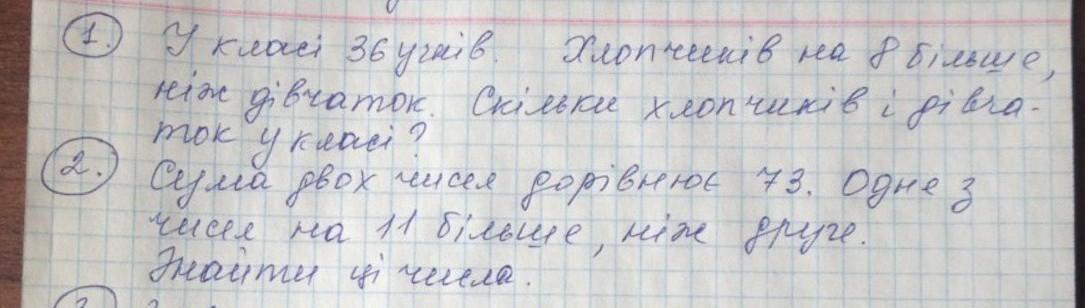 1. У класі 36 учнів. Хлопчиків на 8 більше,
ніж дівчаток. Скільки хлопчиків і дівча-
ток у класі?
2. Сума двох чисел дорівнює 73. Одне з
чисел на 11 більше, ніж друге.
Знайти ці числа.